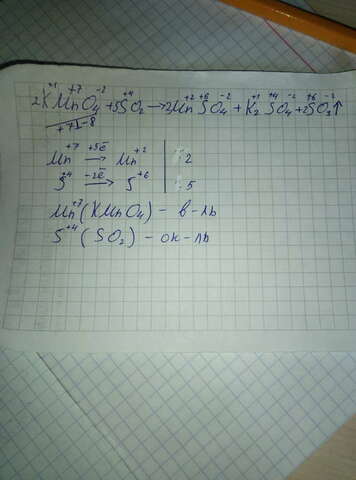 2K⁺¹Mn⁺⁷O₄⁻² + 5S⁺⁴O₂ → 2Mn⁺²S⁺⁶O₄⁻² + K₂⁺¹S⁺⁴O₄⁻² + 2S⁺⁶O₂⁻²↑
+7 1 -8
Mn⁺⁷ +5ē → Mn⁺² | 2
S⁺⁴ -2ē → S⁺⁶ | 5
Mn⁺⁷ (KMnO₄) - в-ль
S⁺⁴ (SO₂) - ок-ль